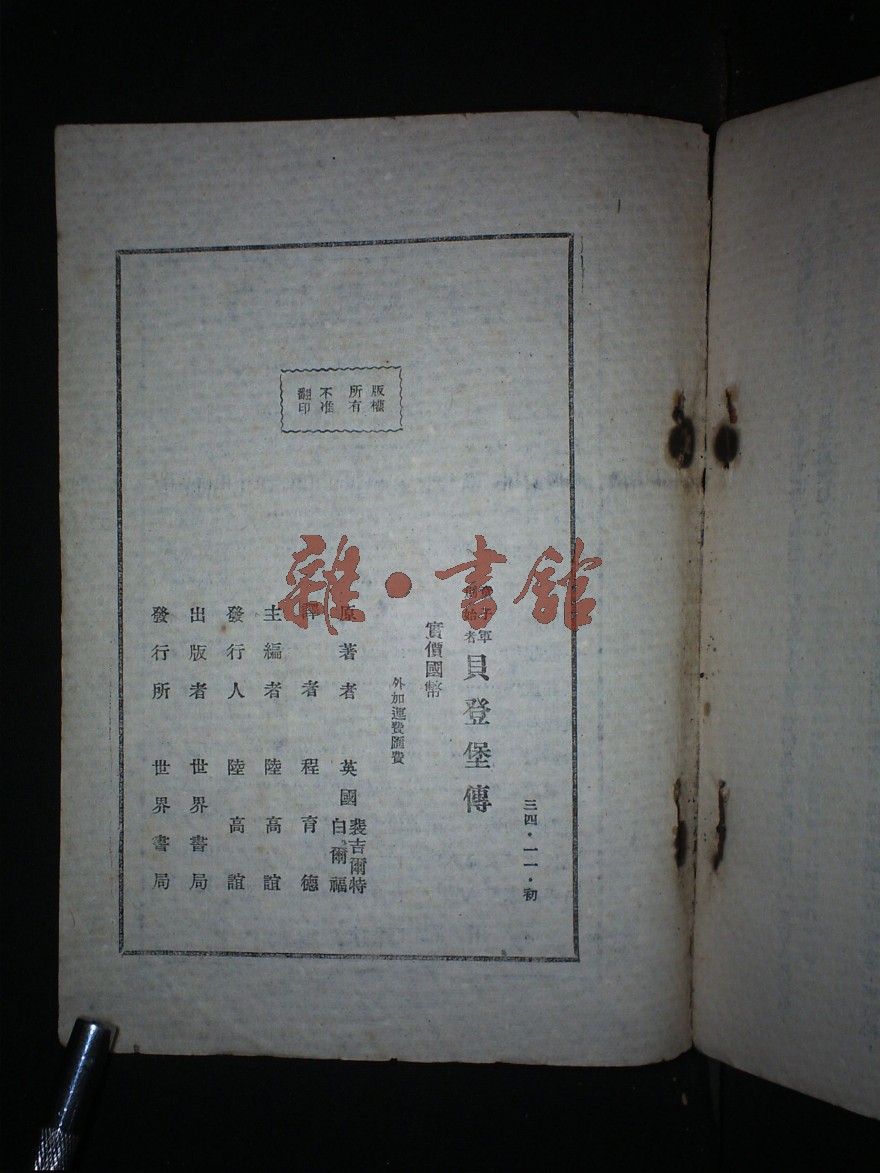 版權
所有
不准
翻印
三四・一一・初
童子軍
創始者
貝登堡傳
實價國幣
外加運費匯費
原著者 英國 裴吉爾特 白爾福
譯者 程育德
主編者 陸高誼
發行人 陸高誼
出版者 世界書局
發行所 世界書局
雜·書館